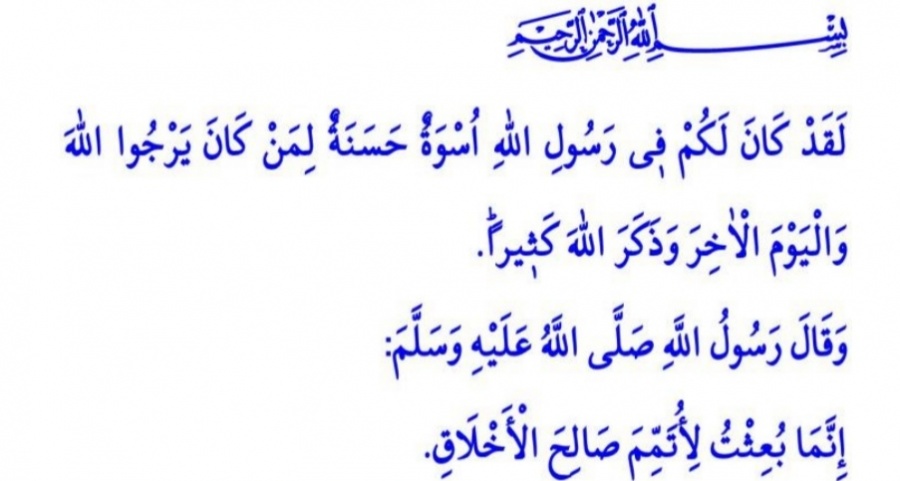 بِسْمِ اللهِ الرَّحْمٰنِ الرَّحِيمِ
لَقَدْ كَانَ لَكُمْ فٖى رَسُولِ اللهِ اُسْوَةٌ حَسَنَةٌ لِمَنْ كَانَ يَرْجُوا اللهَ
وَالْيَوْمَ الْاٰخِرَ وَذَكَرَ اللهَ كَثٖيراًؕ.
وَقَالَ رَسُولُ اللَّهِ صَلَّى اللَّهُ عَلَيْهِ وَسَلَّمَ:
إِنَّمَا بُعِثْتُ لِأُتَمِّمَ صَالِحَ الْأَخْلَاقِ.